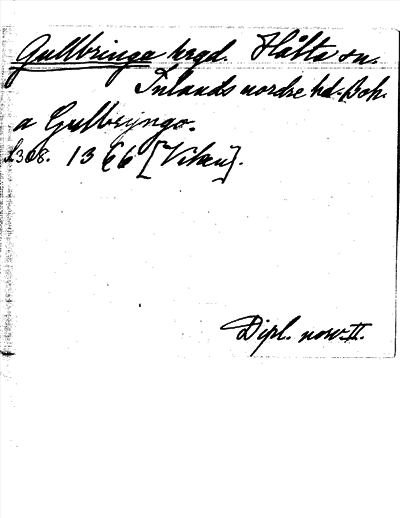 Gullbringa hrgd. Hålta sn.
Inlands nordre hd. Boh.
a Gulbryngo.
s. 308. 1366 [Viken].
Dipl. norv. II.